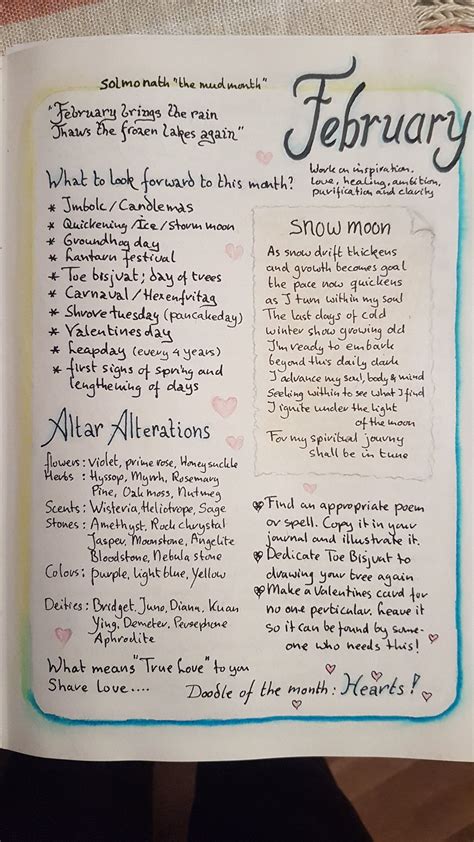 Solmonath "the mud month"
February
"February brings the rain
Thaws the frozen lakes again"
Work on inspiration,
love, healing, ambition,
purification and clarity
What to look forward to this month?
* Imbolc / Candlemas
* Quickening / Ice / Storm moon
* Groundhog day
* Lantarn festival
* Toe bisjvat; day of trees
* Carnaval / Hexenfritag
* Shrove tuesday (pancakeday)
* Valentines day
* Leapday (every 4 years)
* first signs of spring and
lengthening of days
Snow moon
As snow drift thickens
and growth becomes goal
the pace now quickens
as I turn within my soul
The last days of cold
winter show growing old
I'm ready to embark
beyond this daily dark
I advance my soul, body & mind
Seeking within to see what I find
I ignite under the light
of the moon
For my spiritual journy
shall be in tune
Altar Alterations
flowers: Violet, prime rose, Honeysuckle
Herbs : Hyssop, Myrrh, Rosemary
Pine, Oak moss, Nutmeg
Scents: Wisteria, Heliotrope, Sage
Stones: Amethyst, Rock chrystal
Jasper, Moonstone, Angelite
Bloodstone, Nebula stone
Colors: purple, light blue, Yellow
Deities: Bridget, Juno, Diana, Kuan
Ying, Demeter, Persephone
Aphrodite
Find an appropriate poem
or spell. Copy it in your
journal and illustrate it.
Dedicate Toe Bisjvat to
drawing your tree again
Make a Valentines card for
no one perticular. Leave it
so it can be found by some-
one who needs this!
What means "True Love" to you
Share Love....
Doodle of the month: Hearts!